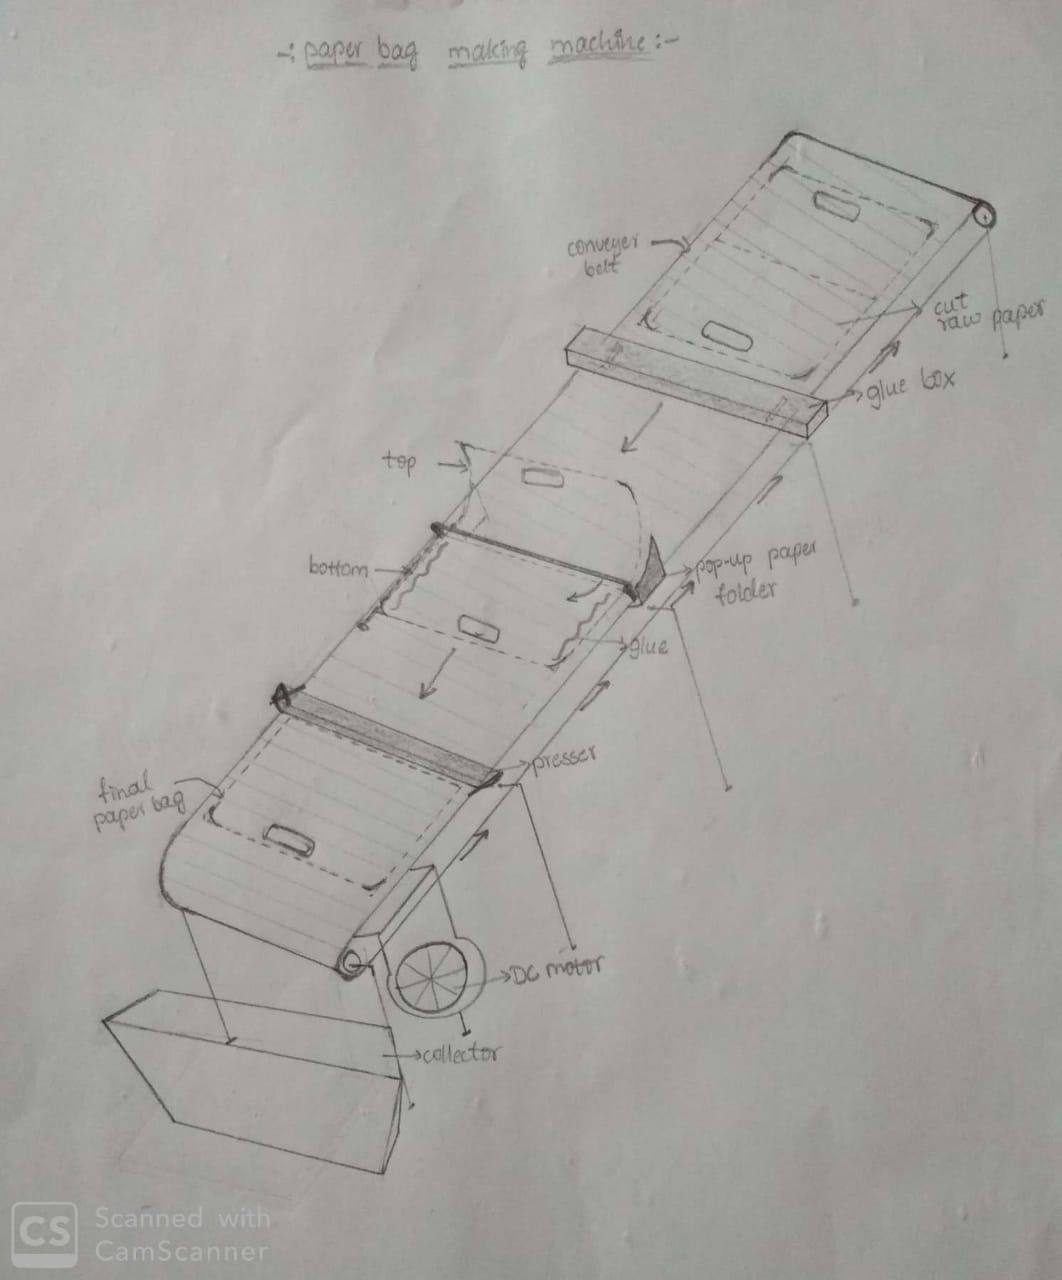 -: paper bag making machine :-
conveyer
belt
cut
raw paper
glue box
top
bottom
pop-up paper
folder
glue
presser
final
paper bag
DC motor
collector
CS Scanned with
CamScanner